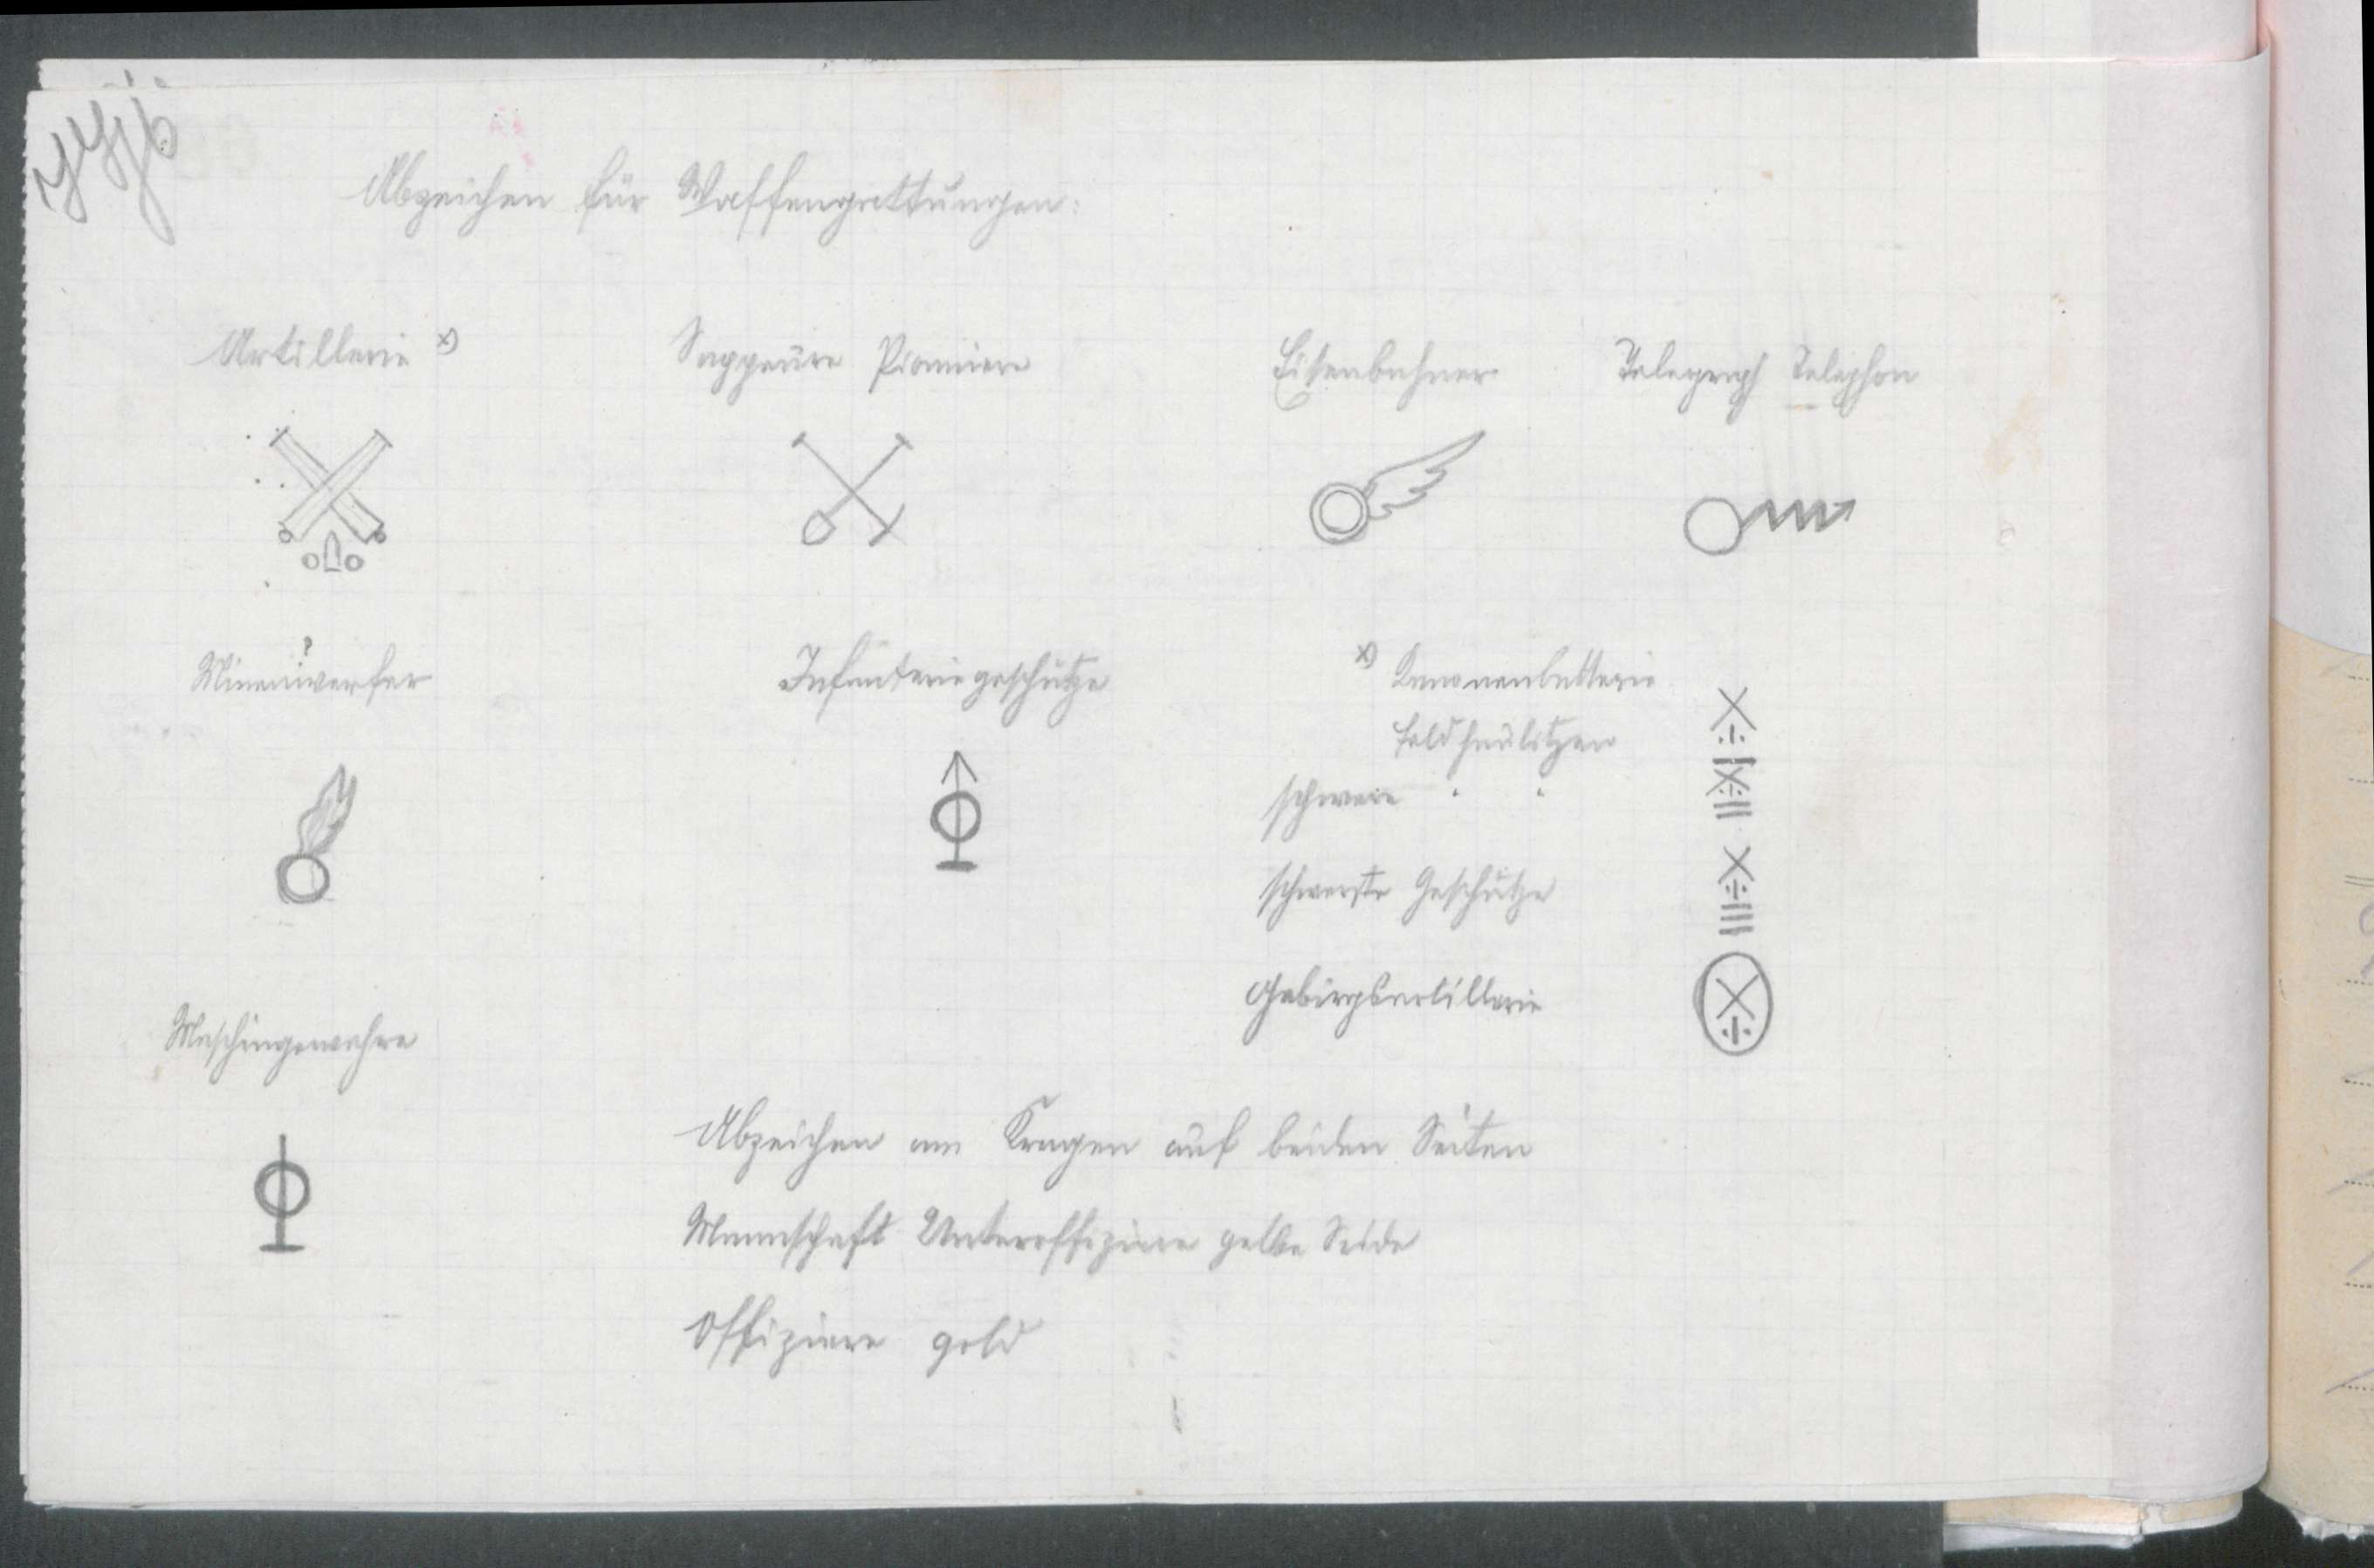 Abzeichen für Waffengattungen:
Artillerie x)
Sappeure Pioniere
Eisenbahner
Telegraph Telephon
Minenwerfer
Infanteriegeschütze
x) Kanonenbatterie
Feldhaubitzen
schwere " "
schwerste Geschütze
Gebirgsartillerie
Maschingewehre
Abzeichen am Kragen auf beiden Seiten
Mannschaft Unteroffiziere gelbe Seide
Offiziere gold